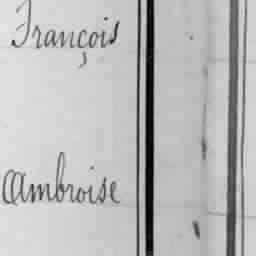 François
Ambroise